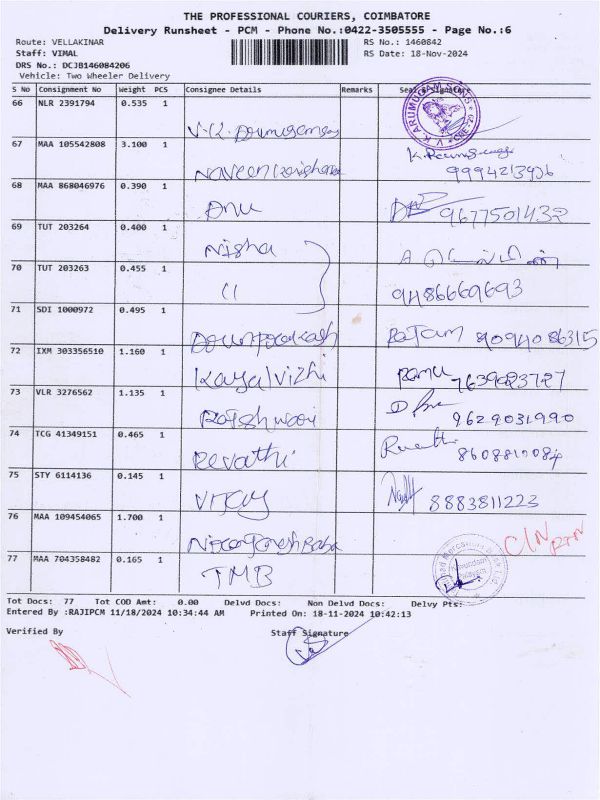 THE PROFESSIONAL COURIERS, COIMBATORE
Delivery Runsheet - PCM - Phone No.:0422-3505555 - Page No.:6
Route: VELLAKINAR RS No.: 1460842
Staff: VIMAL RS Date: 18-Nov-2024
DRS No.: DCJB146084206
Vehicle: Two Wheeler Delivery
S No Consignment No Weight PCS Consignee Details Remarks Seal & Signature
66 NLR 2391794 0.535 1
V.K.
67 MAA 105542808 3.100 1
Naveen 
68 MAA 868046976 0.390 1
Anu 9677501432
69 TUT 203264 0.400 1
Nisha
70 TUT 203263 0.455 1
11 9486669693
71 SDI 1000972 0.495 1
Rajam 9094086315
72 IXM 303356510 1.160 1
Kayalvizhi Ramu
73 VLR 3276562 1.135 1
Rajeshwari 9629031990
74 TCG 41349151 0.465 1
Revathi Revathi
75 STY 6114136 0.145 1
Vijay 8883811223
76 MAA 109454065 1.700 1
C/N RTN
77 MAA 704358482 0.165 1
TMB
Tot Docs: 77 Tot COD Amt: 0.00 Delvd Docs: Non Delvd Docs: Delvy Pts:
Entered By :RAJIPCM 11/18/2024 10:34:44 AM Printed On: 18-11-2024 10:42:13
Verified By Staff Signature